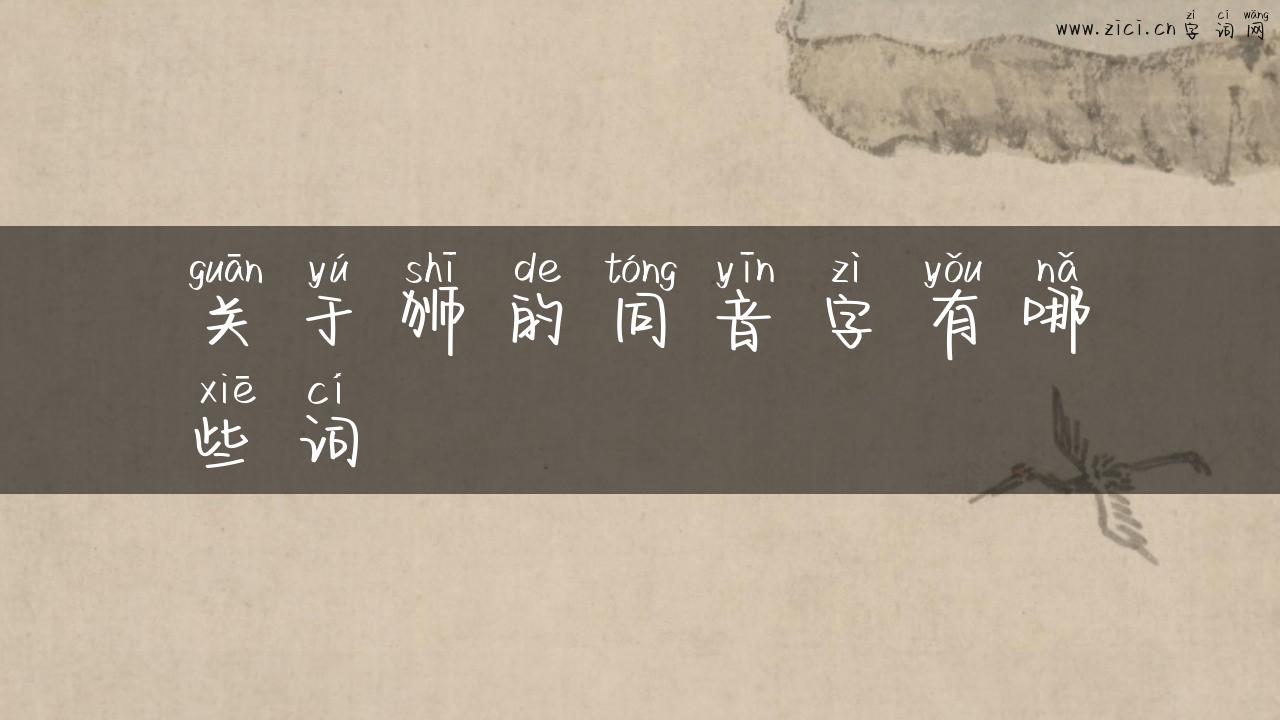 zì cí wǎng
www.zici.cn 字 词 网
guān yú shī de tóng yīn zì yǒu nǎ
关 于 狮 的 同 音 字 有 哪
xiē cí
些 词